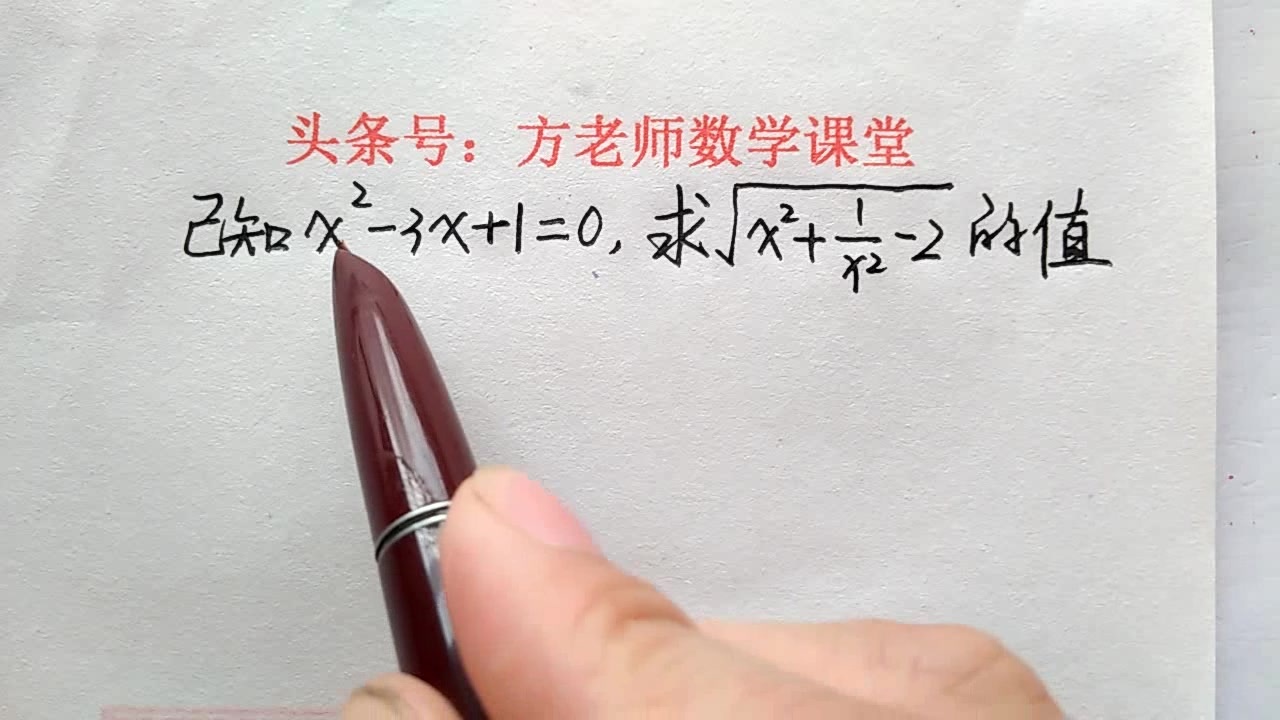 头条号：方老师数学课堂
已知x²-3x+1=0, 求√(x²+1/x²-2) 的值